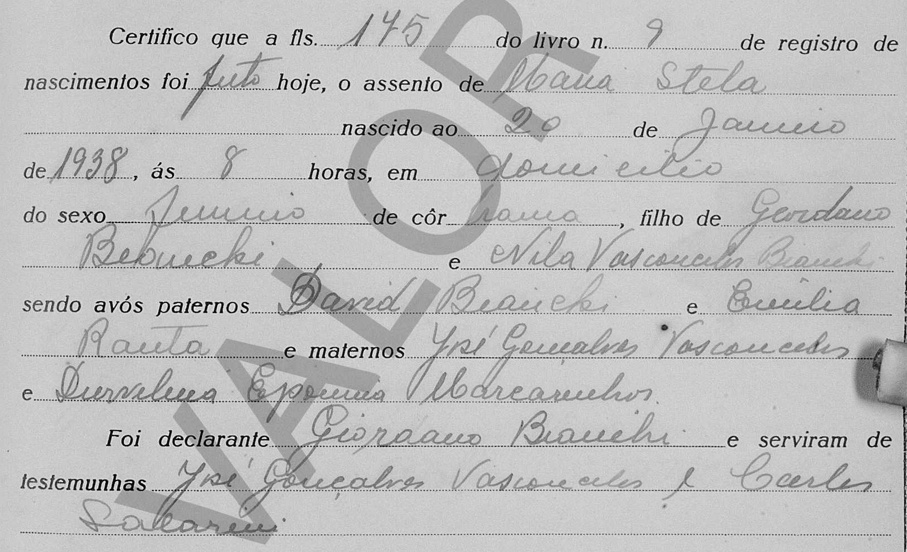 Certifico que a fls. 175 do livro n. 9 de registro de
nascimentos foi feito hoje, o assento de Maria Stela
nascido ao 20 de Janeiro
de 1938, ás 8 horas, em domicilio
do sexo feminino de côr , filho de Giordano
Bianchi e Nila Vasconcelos Bianchi
sendo avós paternos David Bianchi e Emilia
e maternos José Gonçalves Vasconcelos
e Durvalina
Foi declarante Giordano Bianchi e serviram de
testemunhas José Gonçalves Vasconcelos e Carlos
VALOR